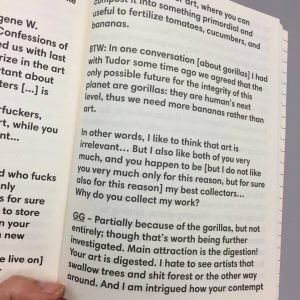 gene W.
Confessions of
ed us with last
rize in the art
rtant about
ters [...] is
rfuckers,
art, while you
nt...
d who fucks
only
s for sure
to store
n your
a new
ve live on]
ates
of art, where you can
compost it into something primordial and
useful to fertilize tomatoes, cucumbers, and
bananas.
BTW: In one conversation [about gorillas] I had
with Tudor some time ago we agreed that the
only possible future for the integrity of this
planet are gorillas: they are human's next
level, thus we need more bananas rather than
art.
In other words, I like to think that art is
irrelevant... But I also like both of you very
much, and you happen to be [but I do not like
you very much only for this reason, but for sure
also for this reason] my best collectors...
Why do you collect my work?
GG - Partially because of the gorillas, but not
entirely; though that's worth being further
investigated. Main attraction is the digestion!
Your art is digested. I hate to see artists that
swallow trees and shit forest or the other way
around. And I am intrigued how your contempt